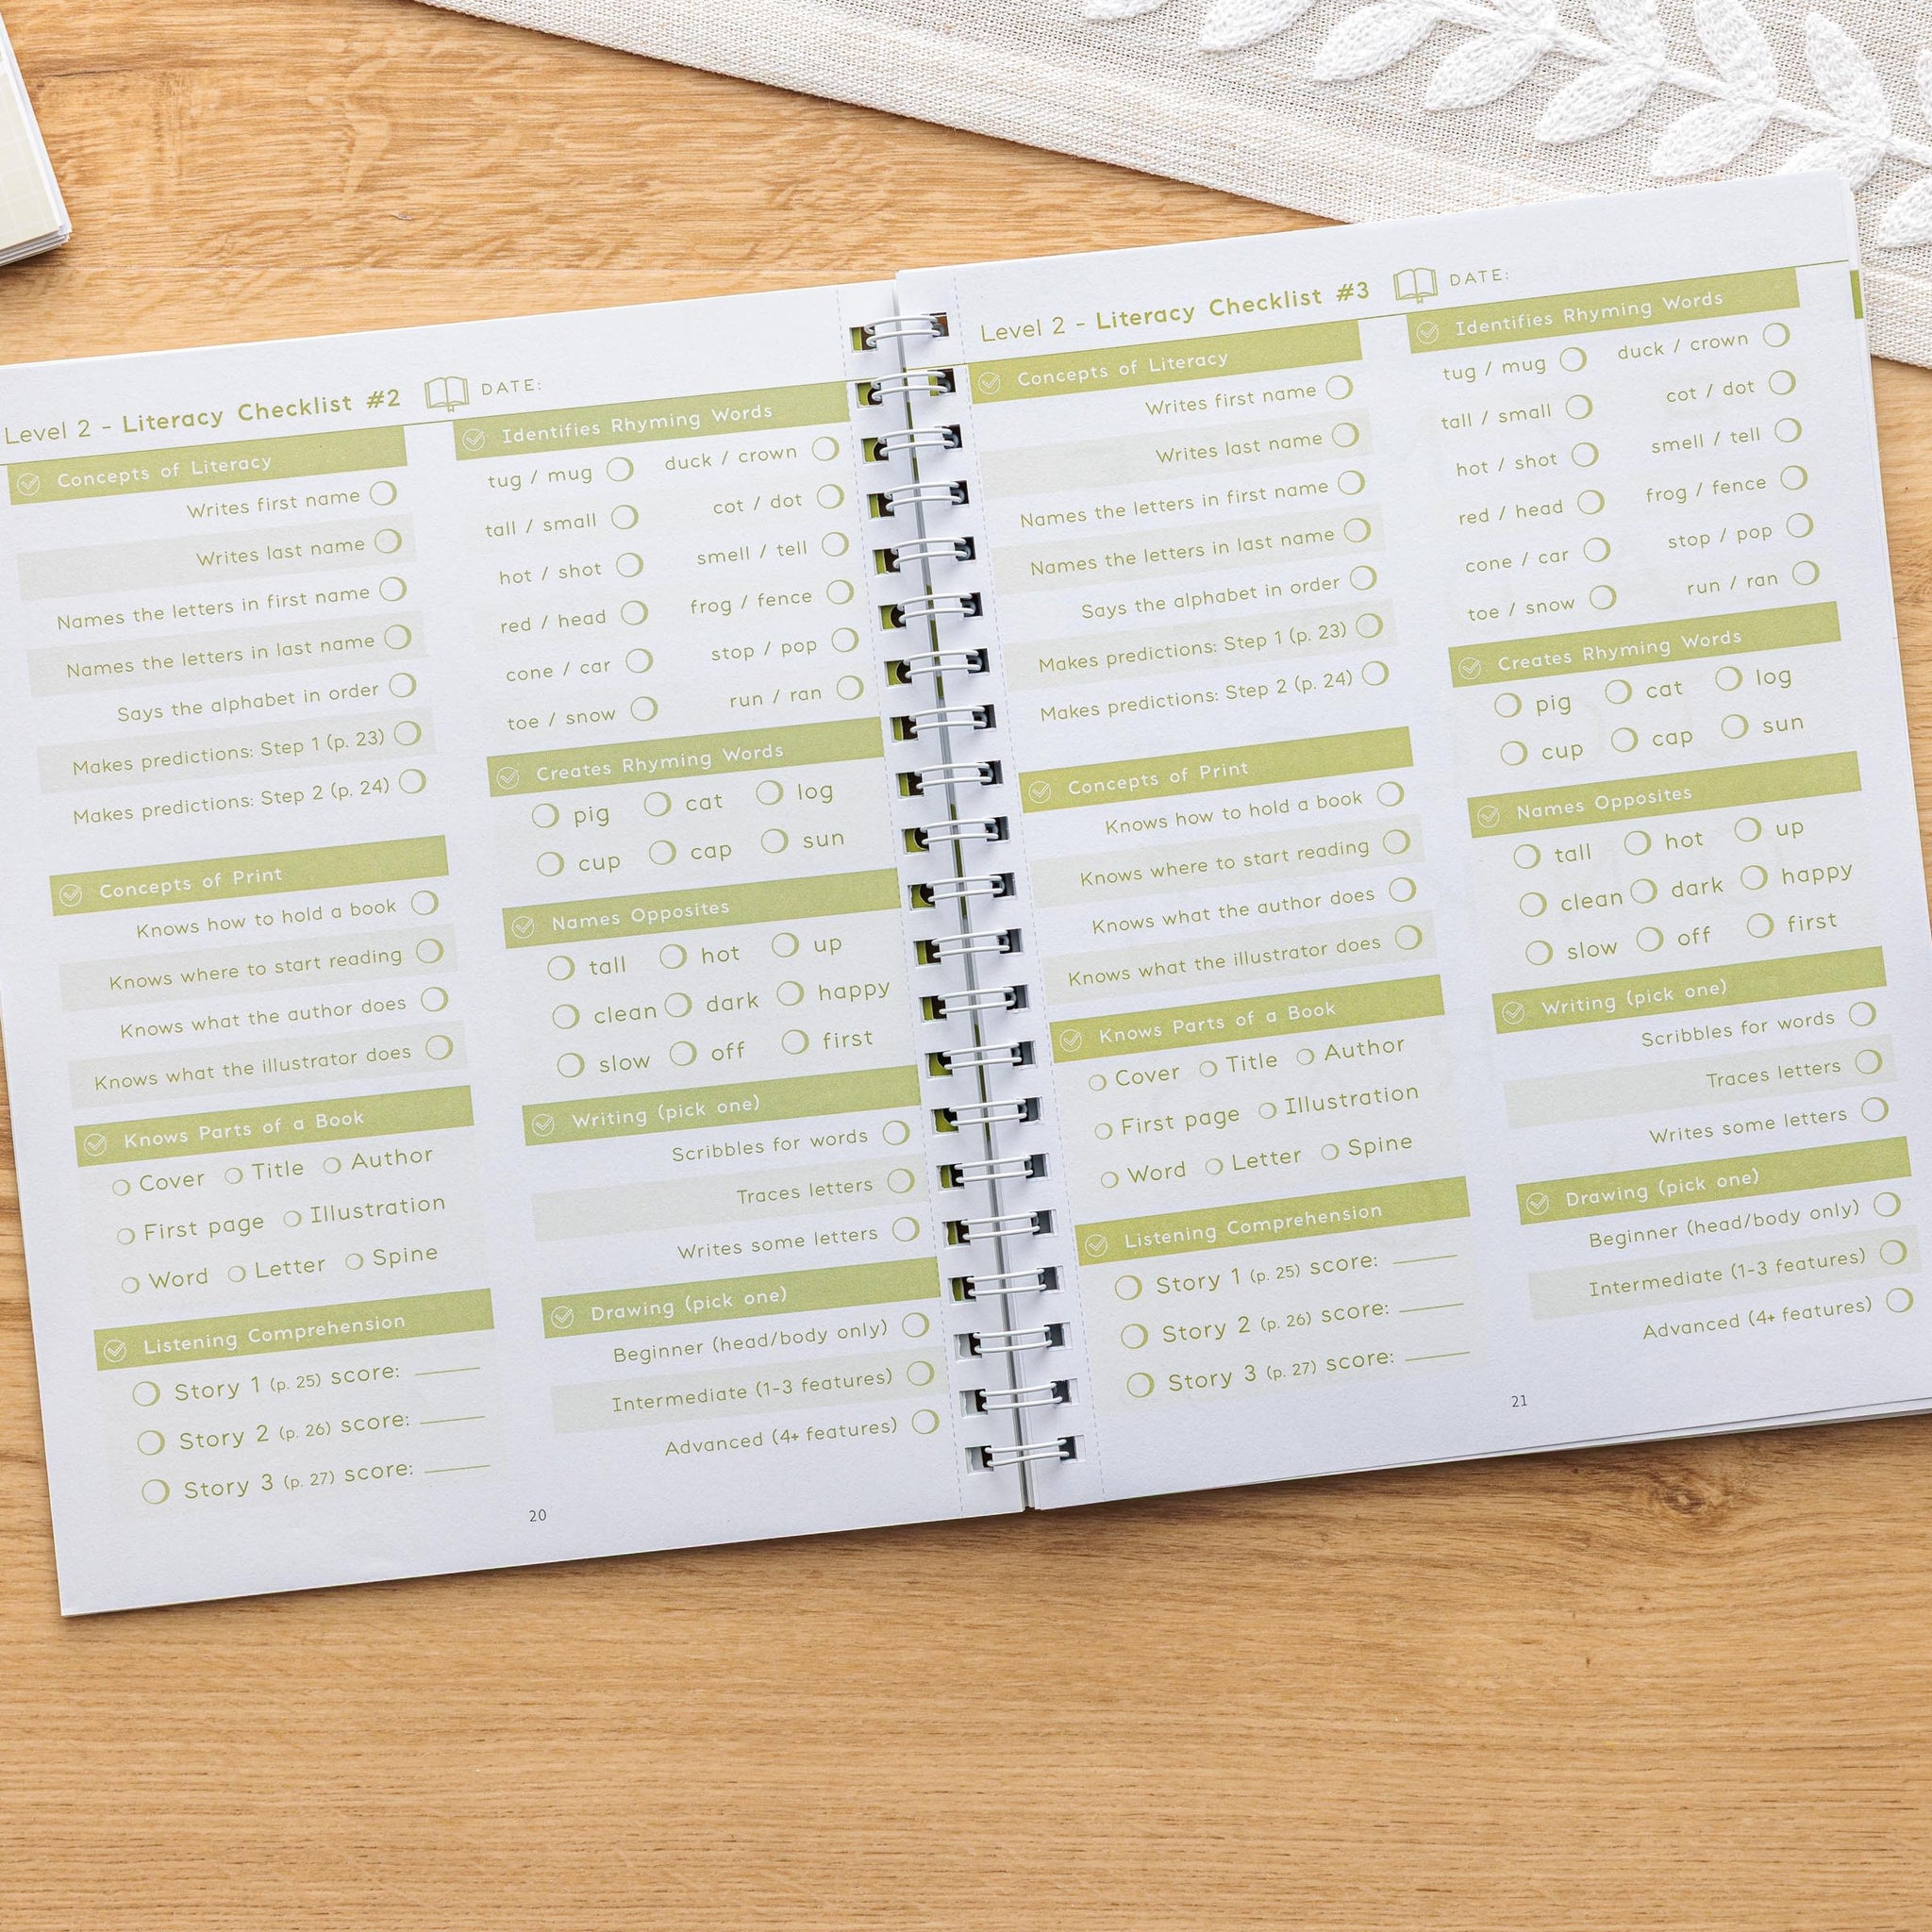 Level 2 - Literacy Checklist #2 DATE:
Concepts of Literacy
Writes first name
Writes last name
Names the letters in first name
Names the letters in last name
Says the alphabet in order
Makes predictions: Step 1 (p. 23)
Makes predictions: Step 2 (p. 24)
Concepts of Print
Knows how to hold a book
Knows where to start reading
Knows what the author does
Knows what the illustrator does
Knows Parts of a Book
Cover Title Author
First page Illustration
Word Letter Spine
Listening Comprehension
Story 1 (p. 25) score:
Story 2 (p. 26) score:
Story 3 (p. 27) score:
Identifies Rhyming Words
tug / mug duck / crown
tall / small cot / dot
hot / shot smell / tell
red / head frog / fence
cone / car stop / pop
toe / snow run / ran
Creates Rhyming Words
pig cat log
cup cap sun
Names Opposites
tall hot up
clean dark happy
slow off first
Writing (pick one)
Scribbles for words
Traces letters
Writes some letters
Drawing (pick one)
Beginner (head/body only)
Intermediate (1-3 features)
Advanced (4+ features)
20
Level 2 - Literacy Checklist #3 DATE:
Concepts of Literacy
Writes first name
Writes last name
Names the letters in first name
Names the letters in last name
Says the alphabet in order
Makes predictions: Step 1 (p. 23)
Makes predictions: Step 2 (p. 24)
Concepts of Print
Knows how to hold a book
Knows where to start reading
Knows what the author does
Knows what the illustrator does
Knows Parts of a Book
Cover Title Author
First page Illustration
Word Letter Spine
Listening Comprehension
Story 1 (p. 25) score:
Story 2 (p. 26) score:
Story 3 (p. 27) score:
Identifies Rhyming Words
tug / mug duck / crown
tall / small cot / dot
hot / shot smell / tell
red / head frog / fence
cone / car stop / pop
toe / snow run / ran
Creates Rhyming Words
pig cat log
cup cap sun
Names Opposites
tall hot up
clean dark happy
slow off first
Writing (pick one)
Scribbles for words
Traces letters
Writes some letters
Drawing (pick one)
Beginner (head/body only)
Intermediate (1-3 features)
Advanced (4+ features)
21